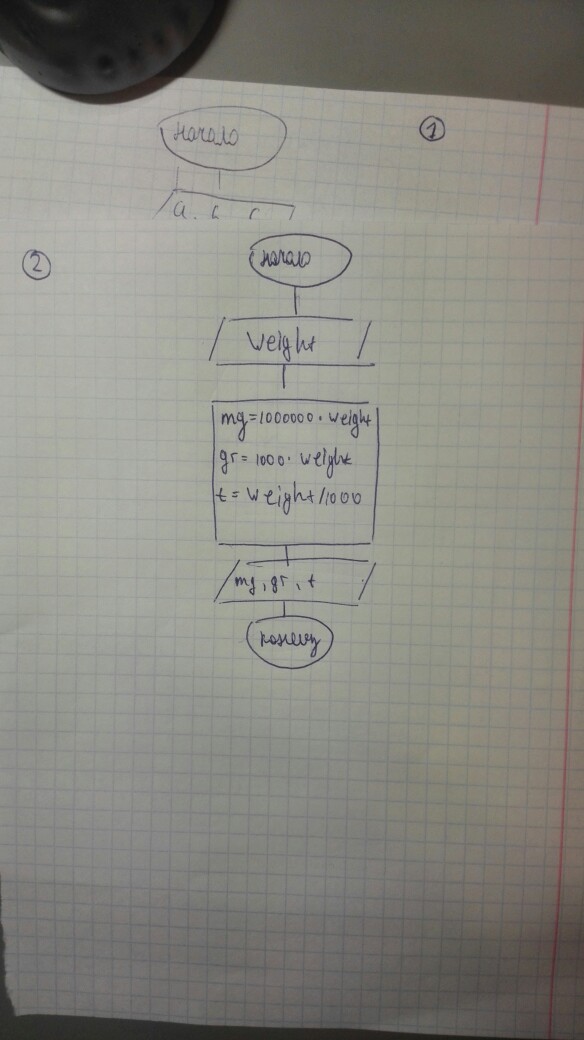 начало
1
a, b, c
2
начало
Weight
mg=1000000·weight
gr=1000·weight
t=weight/1000
mg, gr, t
конец